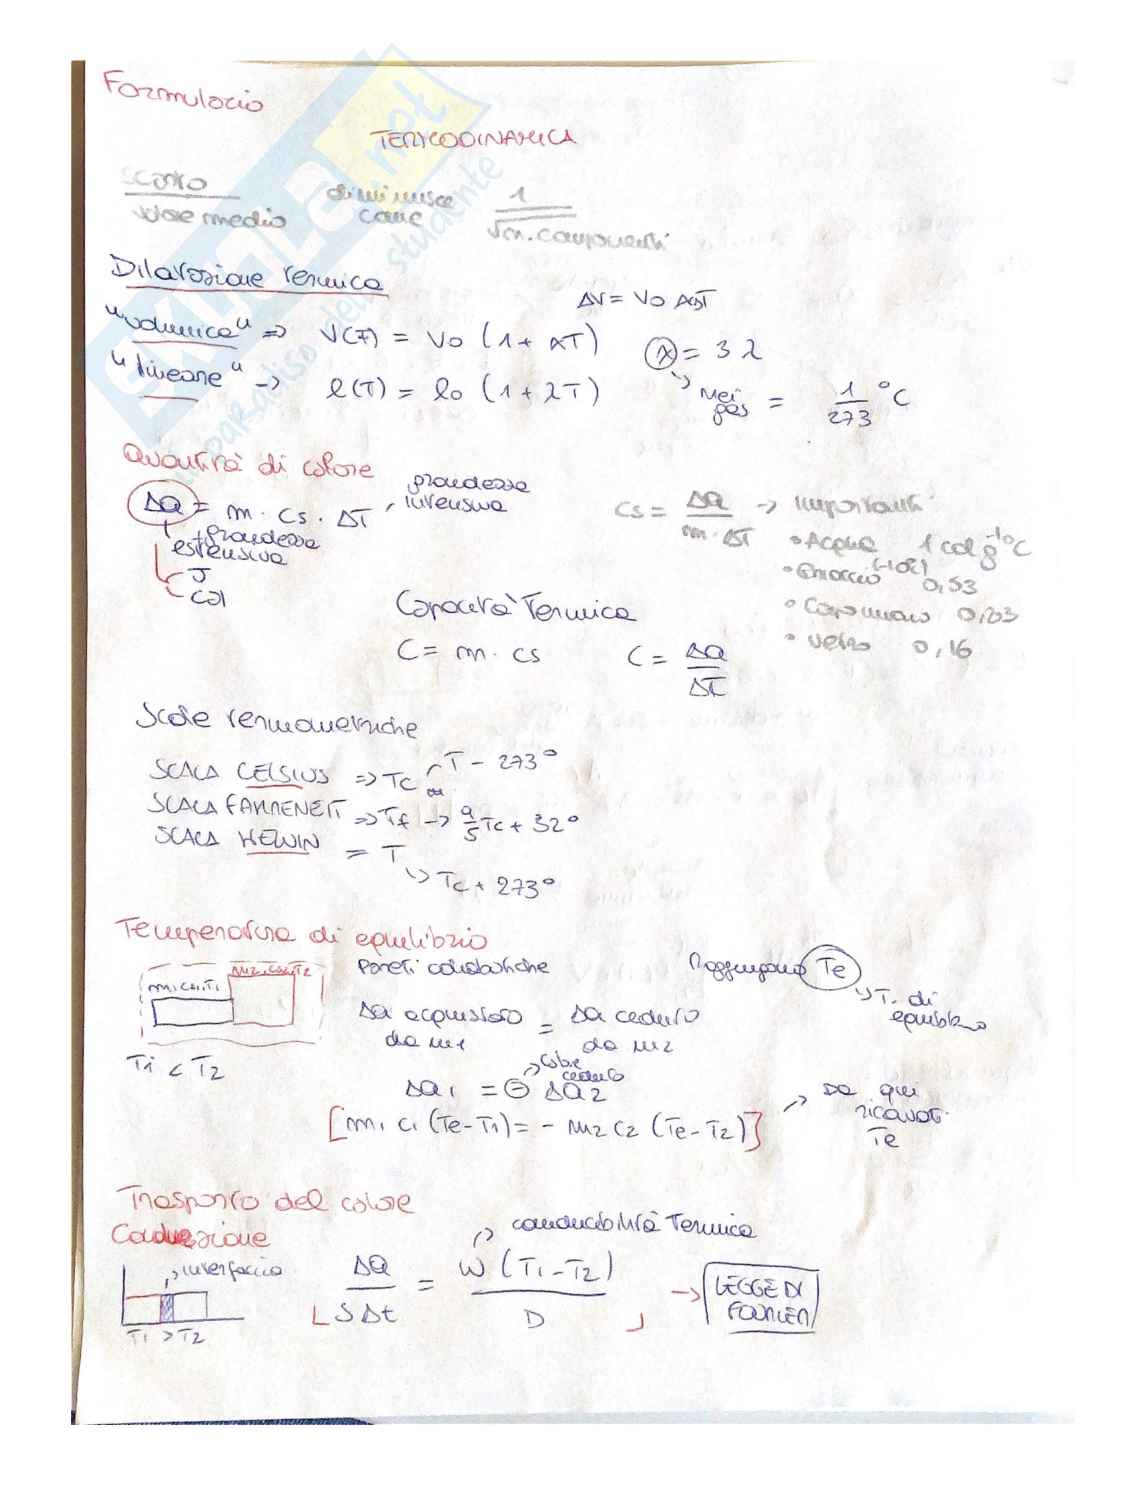 Formulario
TERMODINAMICA
scarto / valore medio diminuisce come 1 / √n. componenti
Dilatazione termica
ΔV = V0 αΔT
"volumica" => V(T) = V0 (1 + αT) α = 3λ
"lineare" -> l(T) = l0 (1 + λT) -> Nei gas = 1/273 °C
Quantità di calore
ΔQ = m · cs · ΔT , grandezza intensiva
grandezza estensiva
J
cal
cs = ΔQ / m · ΔT -> importanti
• Acqua 1 cal g⁻¹°C
• Ghiaccio (-10°C) 0,53
• 0,203
• vetro 0,16
Capacità Termica
C = m · cs C = ΔQ / ΔT
Scale termometriche
SCALA CELSIUS => Tc T - 273°
SCALA FAHRENEIT => Tf -> 9/5 Tc + 32°
SCALA KELVIN = T
-> Tc + 273°
Temperatura di equilibrio
m1.c1.T1 m2.c2.T2
T1 < T2
Pareti adiabatiche Raggiungono Te -> T. di equilibrio
ΔQ acquistato da m1 = ΔQ ceduto da m2
-> calore ceduto
ΔQ1 = - ΔQ2
[m1 c1 (Te - T1) = - m2 c2 (Te - T2)] -> Da qui ricavati Te
Trasporto del calore
Conduzione
-> conducibilità Termica
interfaccia
T1 > T2
ΔQ / S Δt = W (T1 - T2) / D -> LEGGE DI FOURIER
SKUOLA.net
il paradiso dello studente